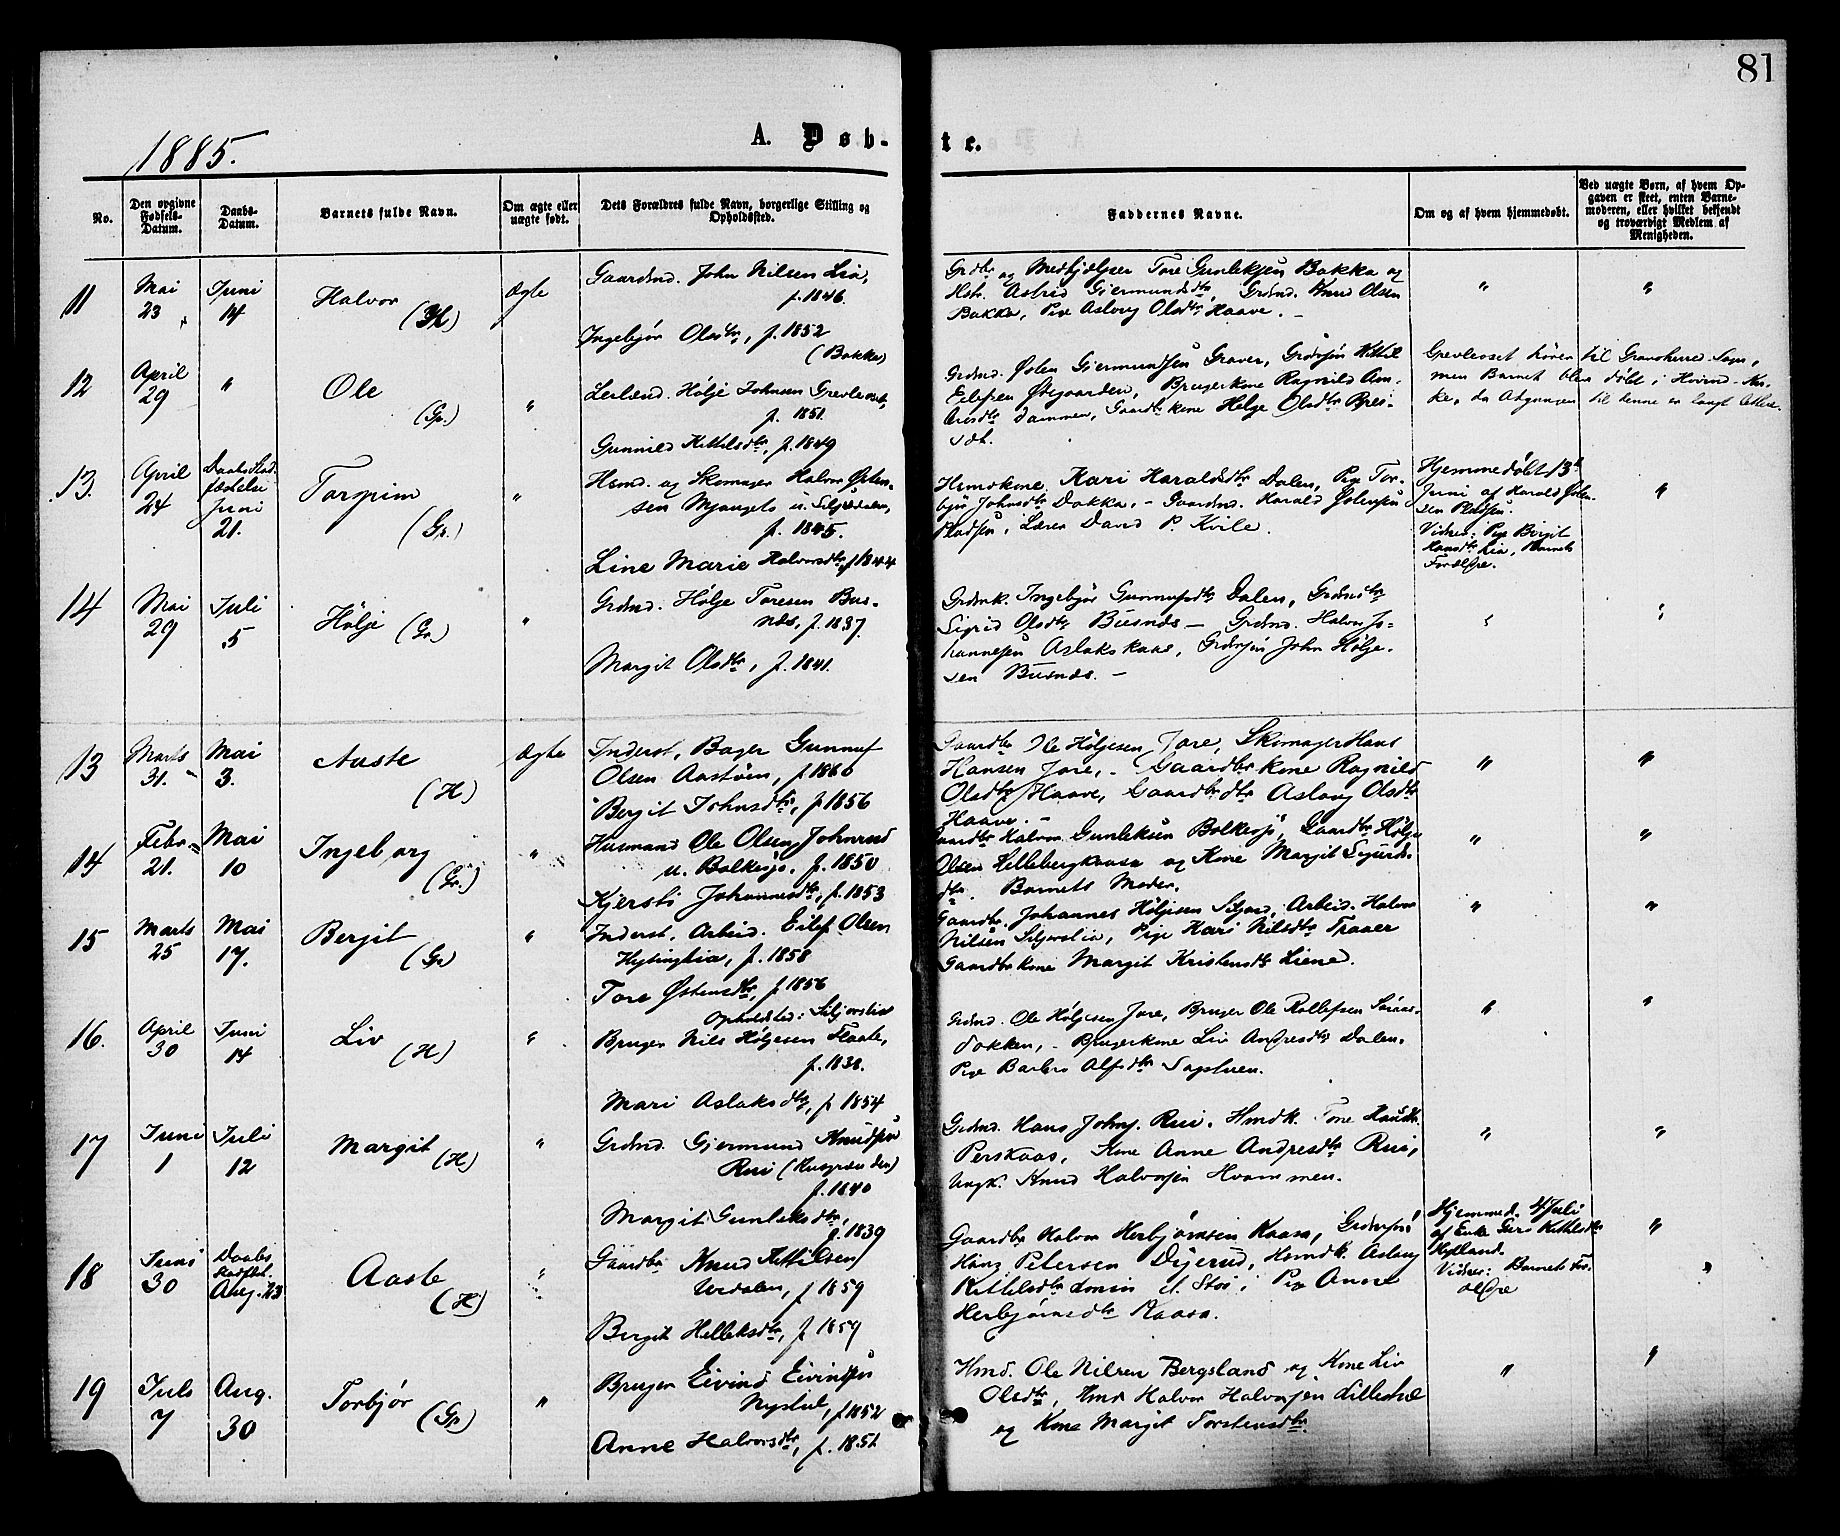 81
1885.
A. Døb-te.
No.
Den opgivne Fødsels-Datum.
Daabs-Datum.
Barnets fulde Navn.
Om ægte eller uægte født.
Dets Forældres fulde Navn, borgerlige Stilling og Opholdssted.
Faddernes Navne.
Om og af hvem hjemmedøbt.
Ved uægte Børn, af hvem Opgaven er skeet, enten Barnemoderen, eller hvilket bekjendt og troværdigt Medlem af Menigheden.
11
Mai 23
Juni 14
Halvor (H)
Ægte
Gaardmd. John Nilsen Lia,
f. 1846.
Ingebjør Olsdtr, f. 1852
(Bakka)
Grdbr og Medhjælper Tore Gunleksen Bakka og
Hstr. Astrid Gjermundsdtr, Grdmd. Knud Olsen
Bakka, Pige Aslaug Olsdtr Haave. –
"
"
12
April 29
"
Ole
(Gr.)
"
Leilænd. Hølje Johnsen Grevleoset,
f. 1851.
Gunnild Kittilsdtr, f. 1849
Grdmd. Østen Gjermundsen Graver, Grdrsøn Kittil
Eilefsen Østgaarden, Brugerkone Ragnild
Dammen, Gaardbrkone Helge Olsdtr
Grevleoset hører til Gransherred Sogn,
men Barnet blev døbt i Hovind Kir-
ke, da Adgangen til denne er langt lettere.
13.
April 24
Daabs Stad-
fæstelse
Juni
21.
Torgrim
(Gr.)
"
Hsmd. og Skomager Halvor Østen-
sen Mjaugets u. Siljedalen,
f. 1845.
Line Marie Halvorsdtr, f. 1844
Hsmdkone Kari Haraldsdtr Dalen, Pige Tor-
bjør Johnsdtr Dokka, – Gaardmd. Harald Østensen
Pladsen, Lærer David P. Kvile.
Hjemmedøbt 13d
Juni af Harald Østen-
sen Pladsen.
Vidner: Pige Birgit
Hansdtr Lia, Barnets
Forældre.
"
14
Mai 29
Juli 5
Hølje (Gr)
"
Grdmd. Hølje Toresen Bus-
næs, f. 1837.
Margit Olsdtr, f. 1841.
Grdmk. Ingebjør Gunnufsdtr Dalen, Grdmdtr
Sigrid Olsdtr Busnæs – Grdmd. Halvor Jo-
hannesen Aslakskaas, Grdrsøn John Hølje-
sen Busnæs. –
"
"
13
Marts 31.
Mai 3.
Aaste
(H.)
Ægte
Inderst, Bager Gunnuf
Olsen Aastøen, f. 1860
Bergit Johnsdtr, f. 1856
Gaardbr Ole Høljesen Jore, Skomager Hans
Hansen Jore, – Gaardbrkone Ragnild
Olsdtr Haave, Gaardbrdtr Aslaug Olsdtr
Haave. –
"
"
14
Febr 21.
Mai 10
Ingeborg
(Gr.)
"
Husmand Ole Olsen Johnrud
u. Bolkesjø. f. 1850
Kjersti Johannesdtr, f. 1853
Gaardbr Halvor Gunleksen Bolkesjø, Gaardbr Hølje
Olsen Hellebergkaasa og Kone Margit Sigurds-
dtr. Barnets Moder.
"
"
15
Marts 25
Mai 17.
Bergit
(Gr)
"
Inderst, Arbeid. Eilef Olsen
f. 1858
Tore Østensdtr, f. 1856
Opholdsted: Siljorslia
Gaardbr. Johannes Høljesen Siljord, Arbeid. Halvor
Nilsen Siljorslia, Pige Kari Nilsdtr Traaer
Gaardbrkone Margit Kristensdtr Liene.
"
"
16.
April 30
Juni 14
Liv
(H)
"
Bruger Nils Høljesen Flaata,
f. 1838.
Mari Aslaksdtr, f. 1854
Grdmd. Ole Høljesen Jore, Bruger Ole Rollefsen
Brugerkone Liv Andresdtr Dalen.
Pige Barbro Alfsdtr
"
"
17
Juni 1
Juli 12
Margit (H)
"
Grdmd. Gjermund Knudsen
Rui (Husgræs den)
f. 1840
Margit Gunleksdtr,
f. 1839
Grdmd. Hans Johns. Rui. Hmdk. Tone
Perskaas, Kone Anne Andresdtr Rui,
Ungk. Knud Halvorsen Hvammen.
"
"
18
Juni 30
Daabs
Stadfæst.
Aug. 23
Aaste
(H)
"
Gaardbr Knud Kittilsen
Urdalen, f. 1859
Bergit Helleksdtr, f. 1859
Gaardbr Halvor Herbjørnsen Kaasa, Grdrsøn
Hans Petersen Digerud, Hsmdk. Aslaug
Kittilsdtr Pige Anne
Herbjørnsdtr Kaasa.
Hjemmed. 4 Juli
af Enke Guri Kittilsdtr
Hytland.
Vidner: Barnets For-
ældre
"
19
Juli 7
Aug. 30
Torbjør (Gr)
"
Bruger Eivind Eivindsen
Nystul, f. 1852
Anne Halvorsdtr, f. 1851
Hmd. Ole Nilsen Bergsland og Kone Liv
Olsdtr, Hmd Halvor Halvorsen
og Kone Margit Torstensdtr.
"
"